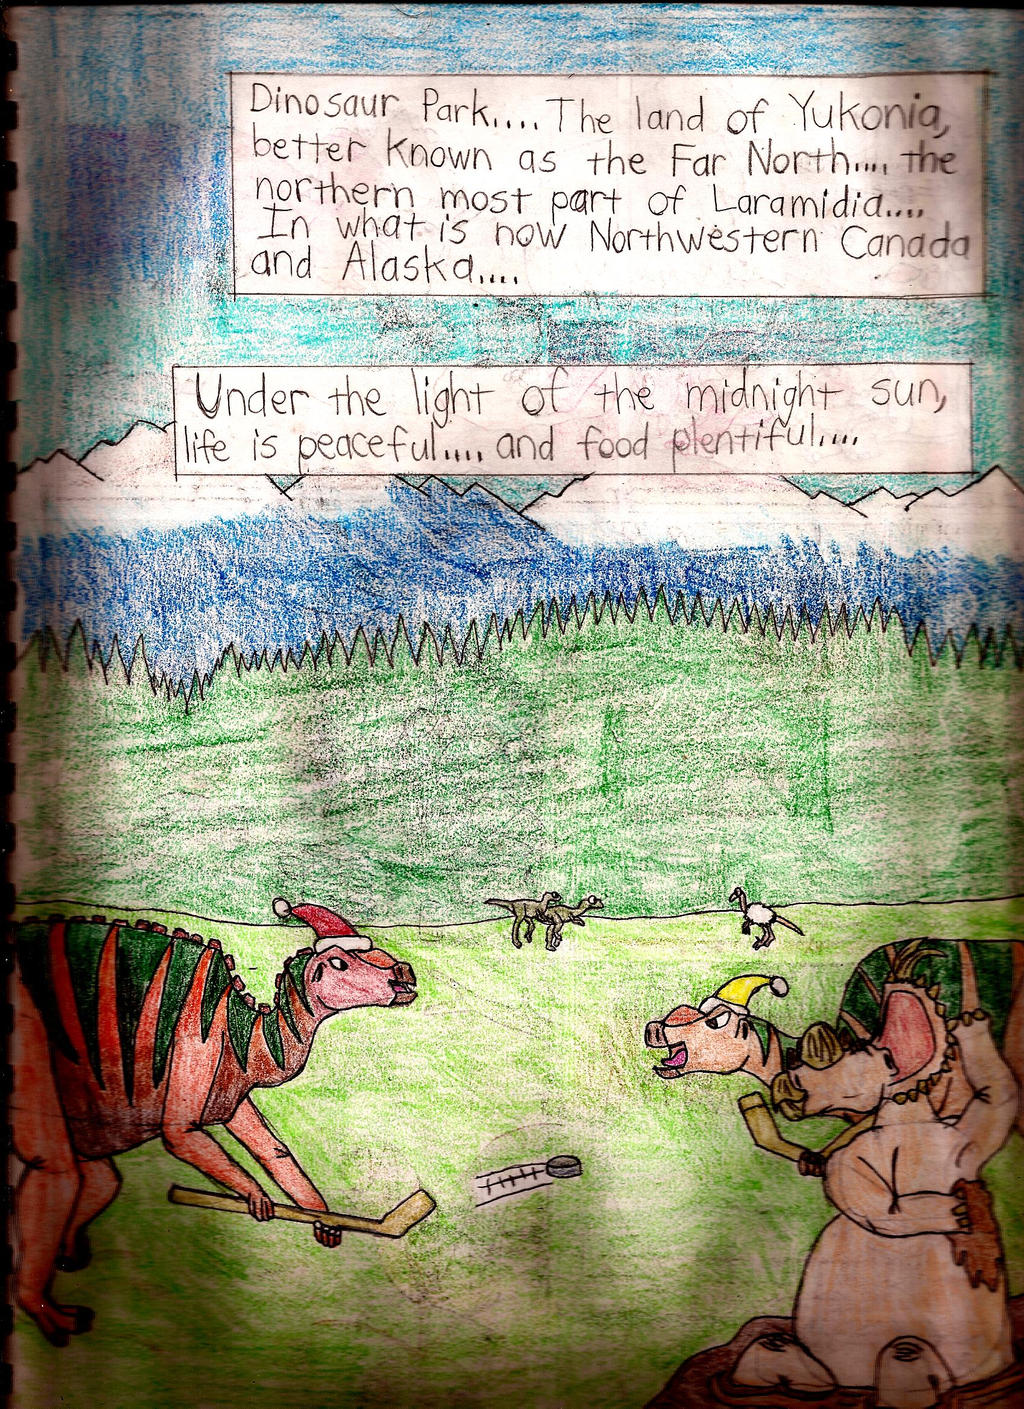 Dinosaur Park.... The land of Yukonia,
better known as the Far North.... the
northern most part of Laramidia....
In what is now Northwestern Canada
and Alaska....
Under the light of the midnight sun,
life is peaceful.... and food plentiful....